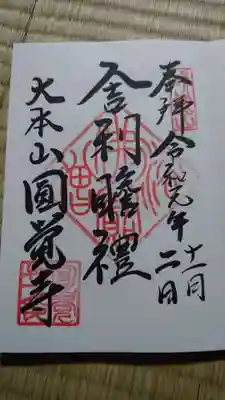 奉拝 令和元年十一月二日
舎利瞻禮
大本山圓覚寺